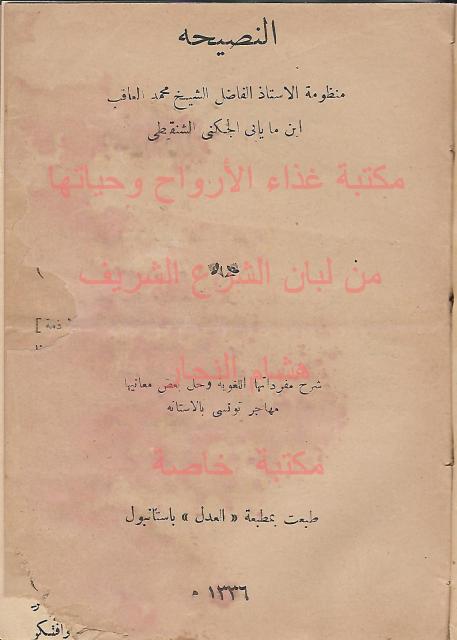 النصيحه
منظومة الاستاذ الفاضل الشيخ محمد العاقب
ابن مايابى الجكنى الشنقيطى
مكتبة غذاء الأرواح وحياتها
من لبان الشرع الشريف
هشام النجار
شرح مفرداتها اللغويه وحل بعض معانيها
مهاجر تونسى بالاستانه
مكتبة خاصة
طبعت بمطبعة «العدل» باستانبول
١٣٣٦ ه
وافتكر